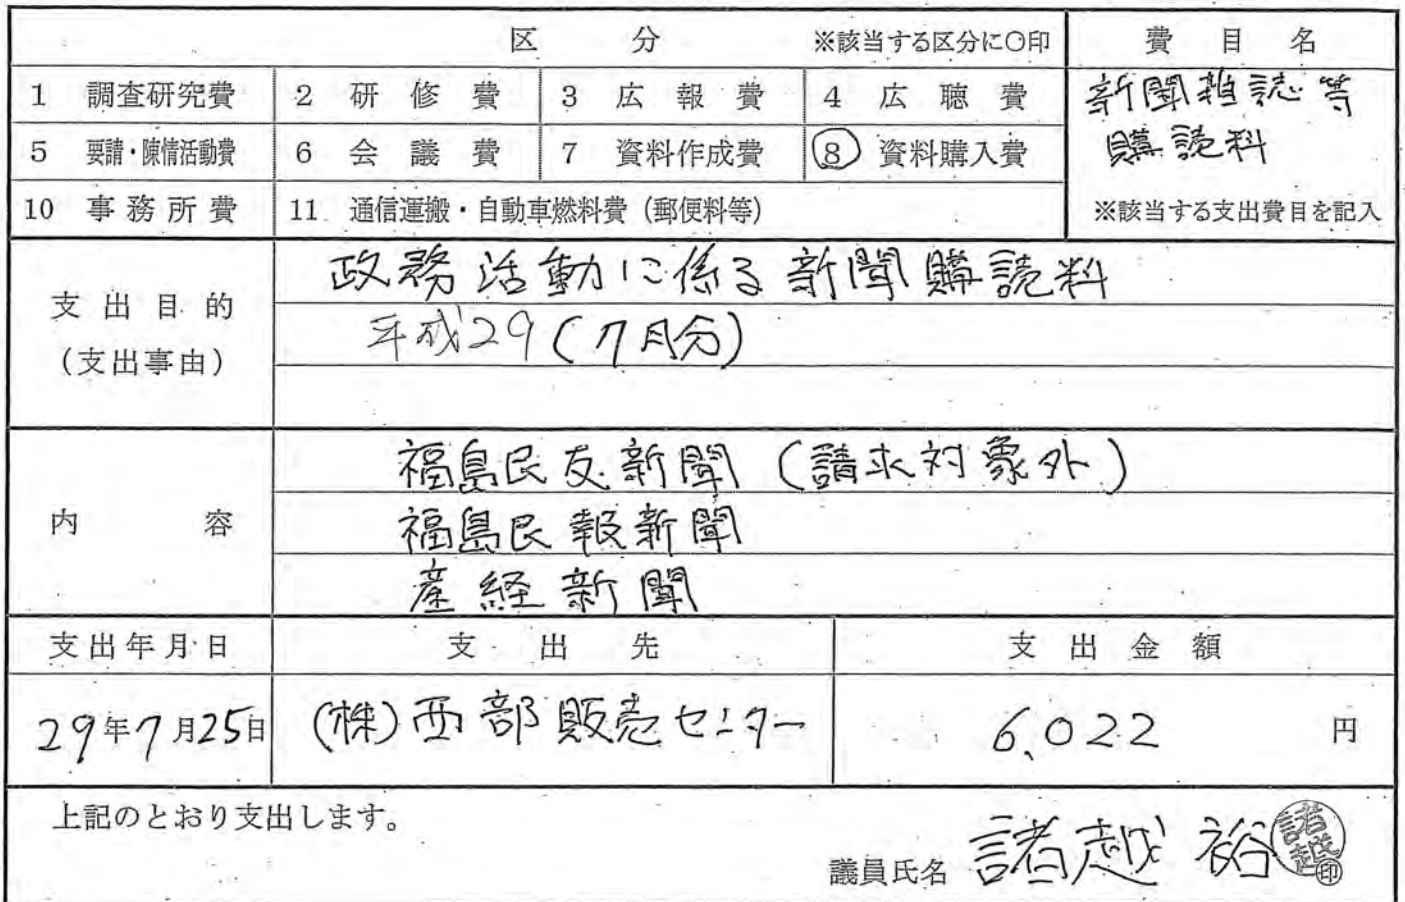 区 分 ※該当する区分に○印 費 目 名
1 調査研究費 2 研 修 費 3 広 報 費 4 広 聴 費 新聞雑誌等
5 要請・陳情活動費 6 会 議 費 7 資料作成費 ⑧ 資料購入費 購読料
10 事 務 所 費 11 通信運搬・自動車燃料費（郵便料等） ※該当する支出費目を記入
支 出 目 的 政務活動に係る新聞購読料
（支出事由） 平成29（7月分）
福島民友新聞（請求対象外）
内 容 福島民報新聞
産経新聞
支出年月日 支 出 先 支 出 金 額
29年7月25日 (株)西部販売センター 6,022 円
上記のとおり支出します。
議員氏名 諸越 裕 諸越印